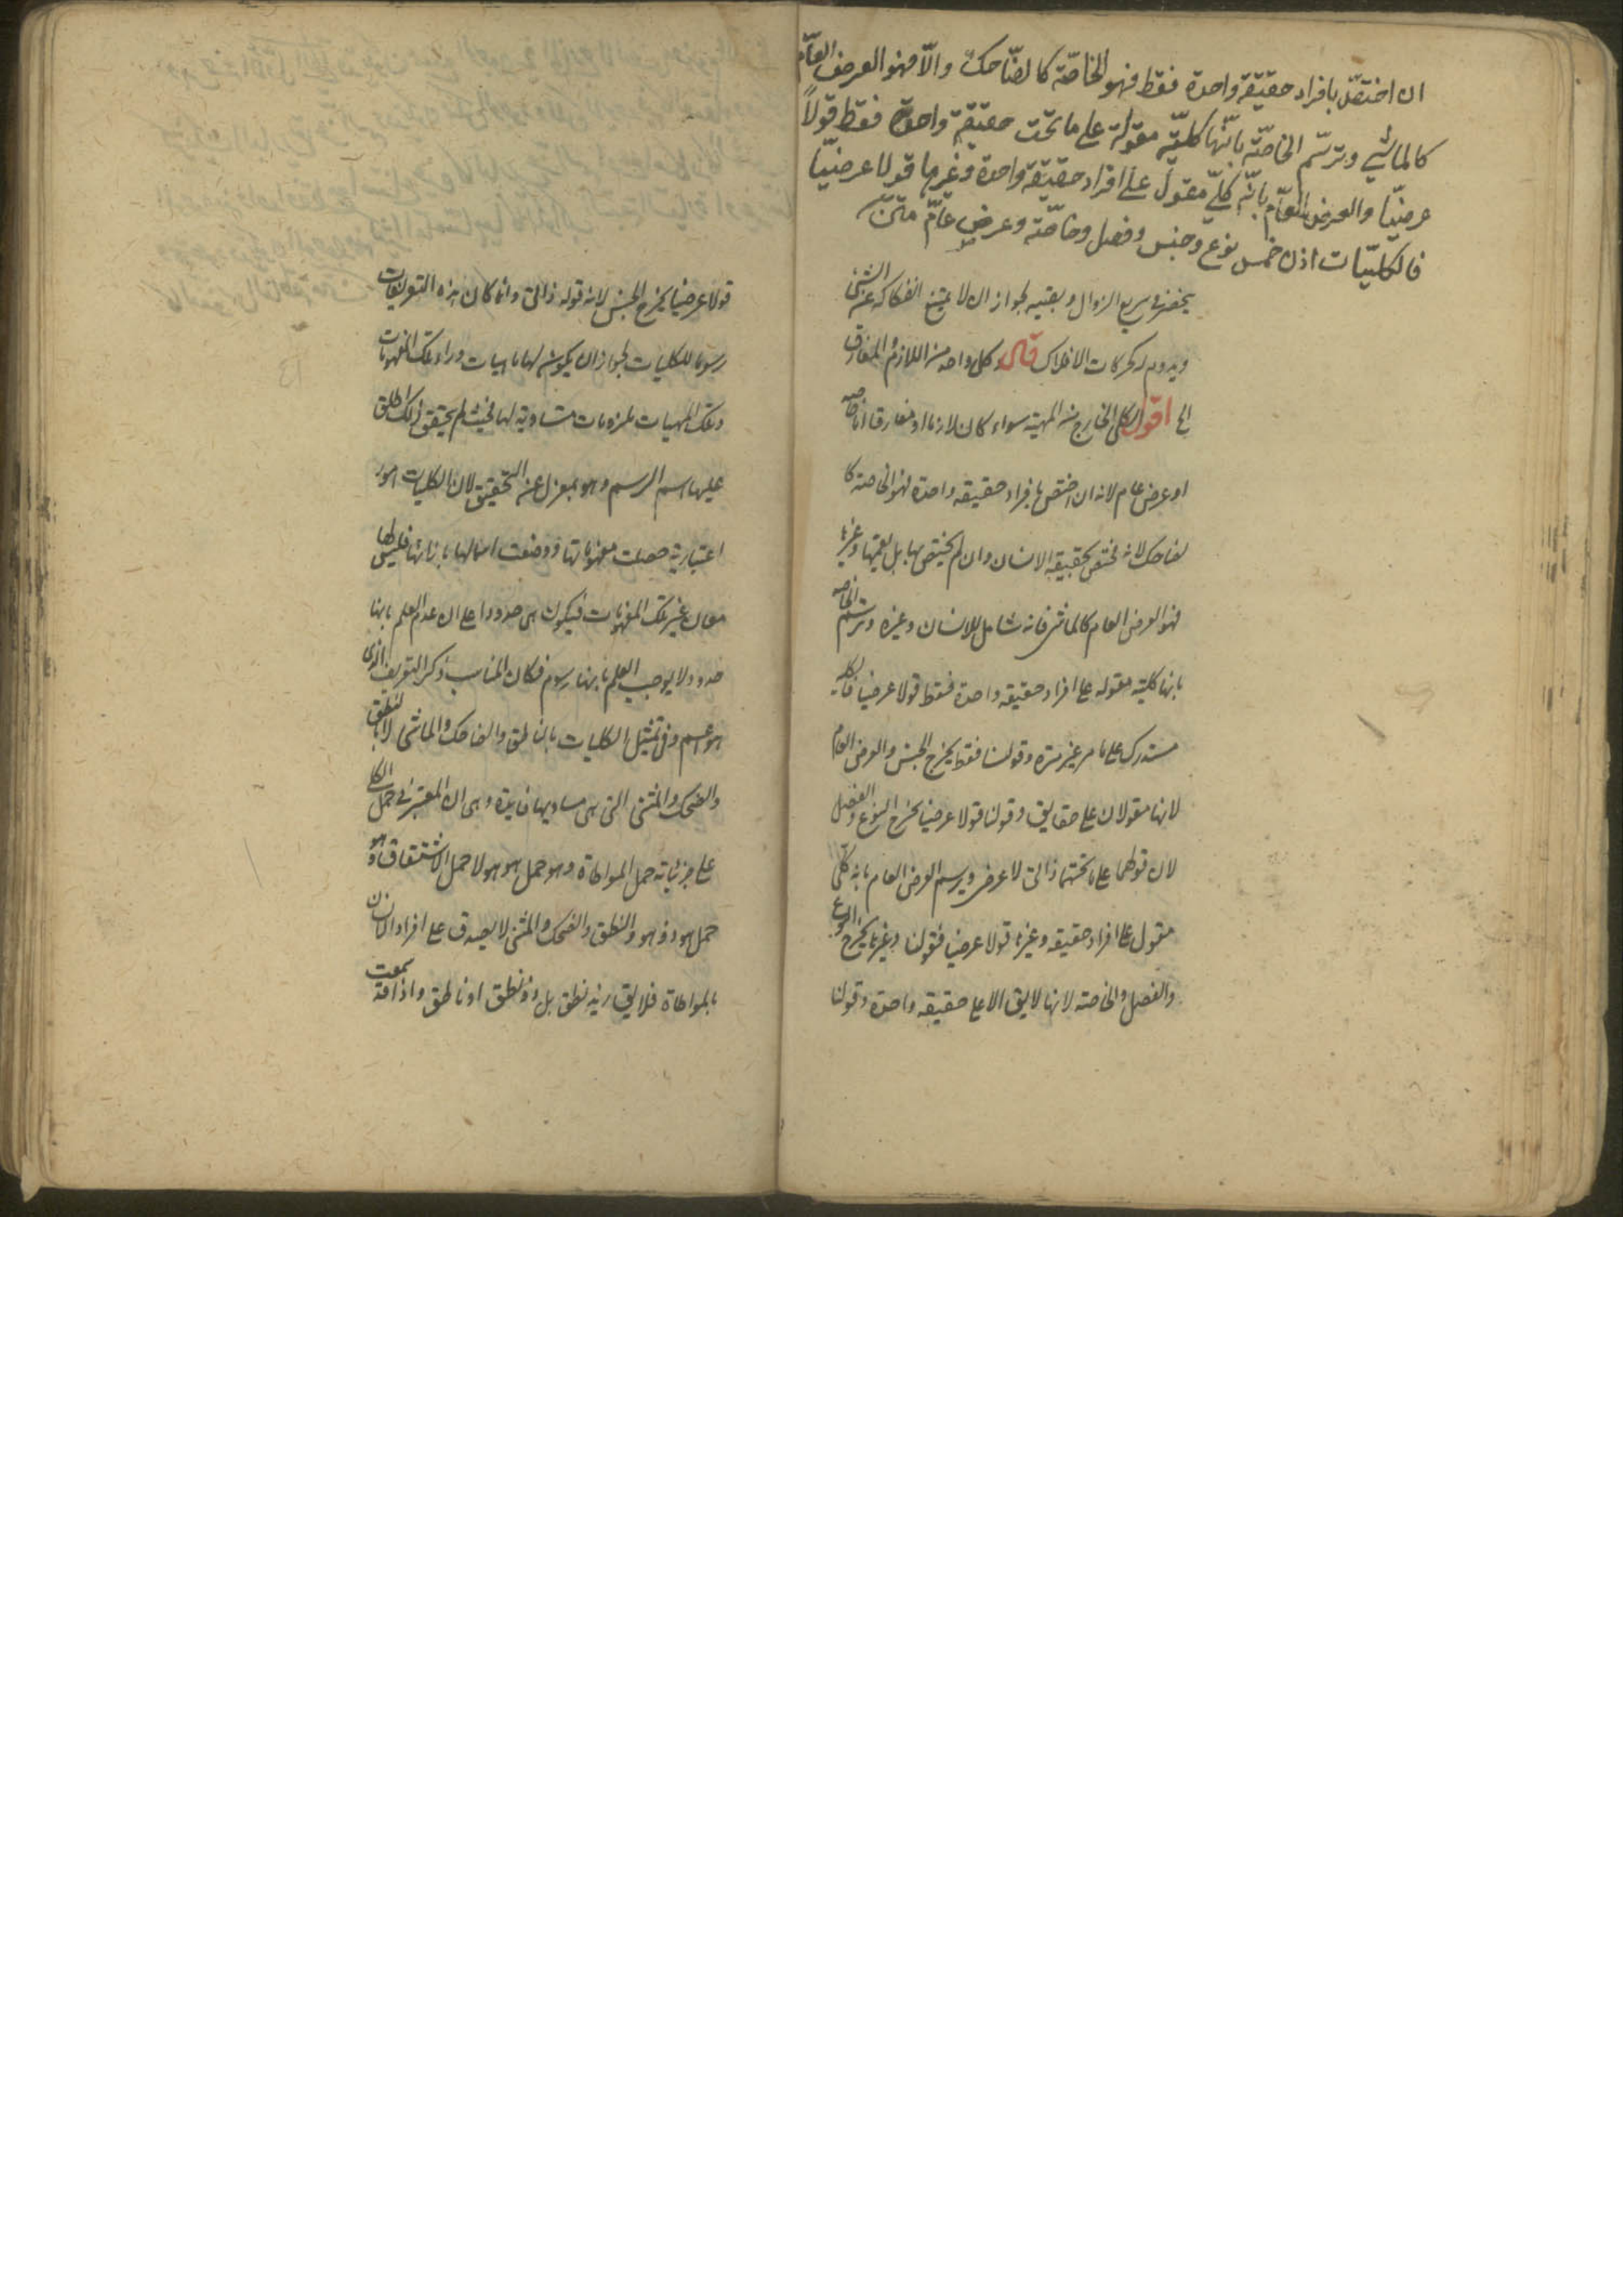 ان اختصّ بافراد حقيقة واحدة فقط فهو الخاصّة كالضّاحك والّا فهو العرض العامّ
كالماشي وترسّم الخاصّة بانّها كليّة مقولة على ما تحت حقيقة واحدة فقط قولاً
عرضيّا والعرض العامّ بانّه كليّ مقول على افراد حقيقة واحدة وغيرها قولا عرضيّا
فالكليّات اذن خمس نوع وجنس وفصل وخاصّة وعرض عامّ متن
ينحصر في سريع الزوال وبطيئه لجواز ان لا يمتنع انفكاكه عن الشئ
ويدوم له كحركات الافلاك قال وكل واحد من اللازم والمفارق
الخ اقول الكلي الخارج عن المهية سواء كان لازما او مفارقا اما خاصة
او عرض عام لانه ان اختص بافراد حقيقة واحدة فهو الخاصة كا
لضاحك لانه مختص بحقيقة الانسان وان لم يختص بها بل يعمها وغيرها
فهو العرض العام كالماشى فانه شامل للانسان وغيره وترسم الخاصة
بانها كلية مقولة على افراد حقيقة واحدة فقط قولا عرضيا فالكلية
مستدركة على ما مر غير مرة وقولنا فقط يخرج الجنس والعرض العام
لانهما مقولان على حقايق وقولنا قولا عرضيا يخرج النوع والفصل
لان قولهما على ما تحتهما ذاتي لا عرضي ويرسم العرض العام بانه كلي
مقول على افراد حقيقة وغيرها قولا عرضيا فقولنا وغيرها يخرج النوع
والفصل والخاصة لانها لا يقال الا على حقيقة واحدة وقولنا
قولا عرضيا يخرج الجنس لانه قوله ذاتي وانما كان هذه التعريفات
رسوما للكليات لجواز ان يكون لها ماهيات وراء تلك المفهومات
وتلك المهيات ملزومات مساوية لها فحيث لم يتحقق ذلك اطلق
عليها اسم الرسم وهو بمعزل عن التحقيق لان الكليات امور
اعتبارية حصلت مفهوماتها ووضعت اسمائها بازائها فليس لها
معان غير تلك المفهومات فيكون هى حدودا على ان عدم العلم بانها
حدود لا يوجب العلم بانها رسوم فكان المناسب ذكر التعريف الذى
هو اعم وفي تمثيل الكليات بالناطق والضاحك والماشى لا بالنطق
والضحك والمشى التى هى مباديها فايدة وهى ان المعتبر في حمل الكلي
على جزئياته حمل المواطاة وهو حمل هو هو لا حمل الاشتقاق وهو
حمل هو ذو هو والنطق والضحك والمشى لا يصدق على افراد الانسان
بالمواطاة فلا يقال زيد نطق بل ذو نطق او ناطق واذا قد سمعت